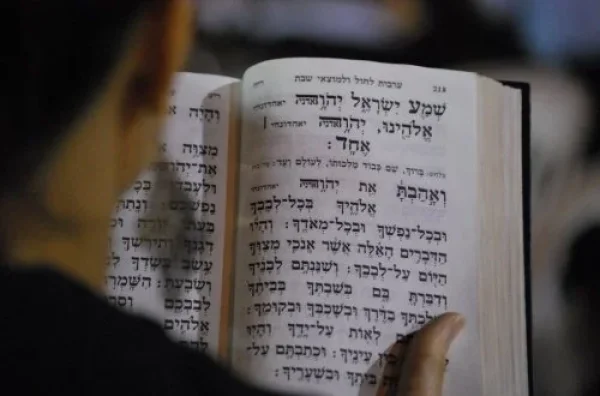 218 ערבית לחול ולמוצאי שבת
שְׁמַע יִשְׂרָאֵל יְהֹוָה יאהדונהי
אֱלֹהֵינוּ, יְהֹוָה יאהדונהי |
אֶחָד:
בלחש: בָּרוּךְ, שֵׁם כְּבוֹד מַלְכוּתוֹ, לְעוֹלָם וָעֶד:
וְאָהַבְתָּ אֵת יְהֹוָה יאהדונהי
אֱלֹהֶיךָ בְּכָל-לְבָבְךָ
וּבְכָל-נַפְשְׁךָ וּבְכָל-מְאֹדֶךָ: וְהָיוּ
הַדְּבָרִים הָאֵלֶּה אֲשֶׁר אָנֹכִי מְצַוְּךָ
הַיּוֹם עַל-לְבָבֶךָ: וְשִׁנַּנְתָּם לְבָנֶיךָ
וְדִבַּרְתָּ בָּם בְּשִׁבְתְּךָ בְּבֵיתֶךָ
בַדֶּרֶךְ וּבְשָׁכְבְּךָ וּבְקוּמֶךָ:
לְאוֹת עַל-יָדֶךָ וְהָיוּ
עֵינֶיךָ: וּכְתַבְתָּם עַל-
בֵּיתֶךָ וּבִשְׁעָרֶיךָ:
וְהָיָה
מִצְוֹ
אֶת-יְהֹ
וּלְעָבְדוֹ
נַפְשְׁכֶם: וְנָתַתִּ
יוֹרֶה
דְגָנֶךָ וְתִירֹשְׁךָ
עֵשֶׂב בְּשָׂדְךָ
וְשָׂבָעְתָּ: הִשָּׁמְרוּ
לְבַבְכֶם
אֱלֹהִים